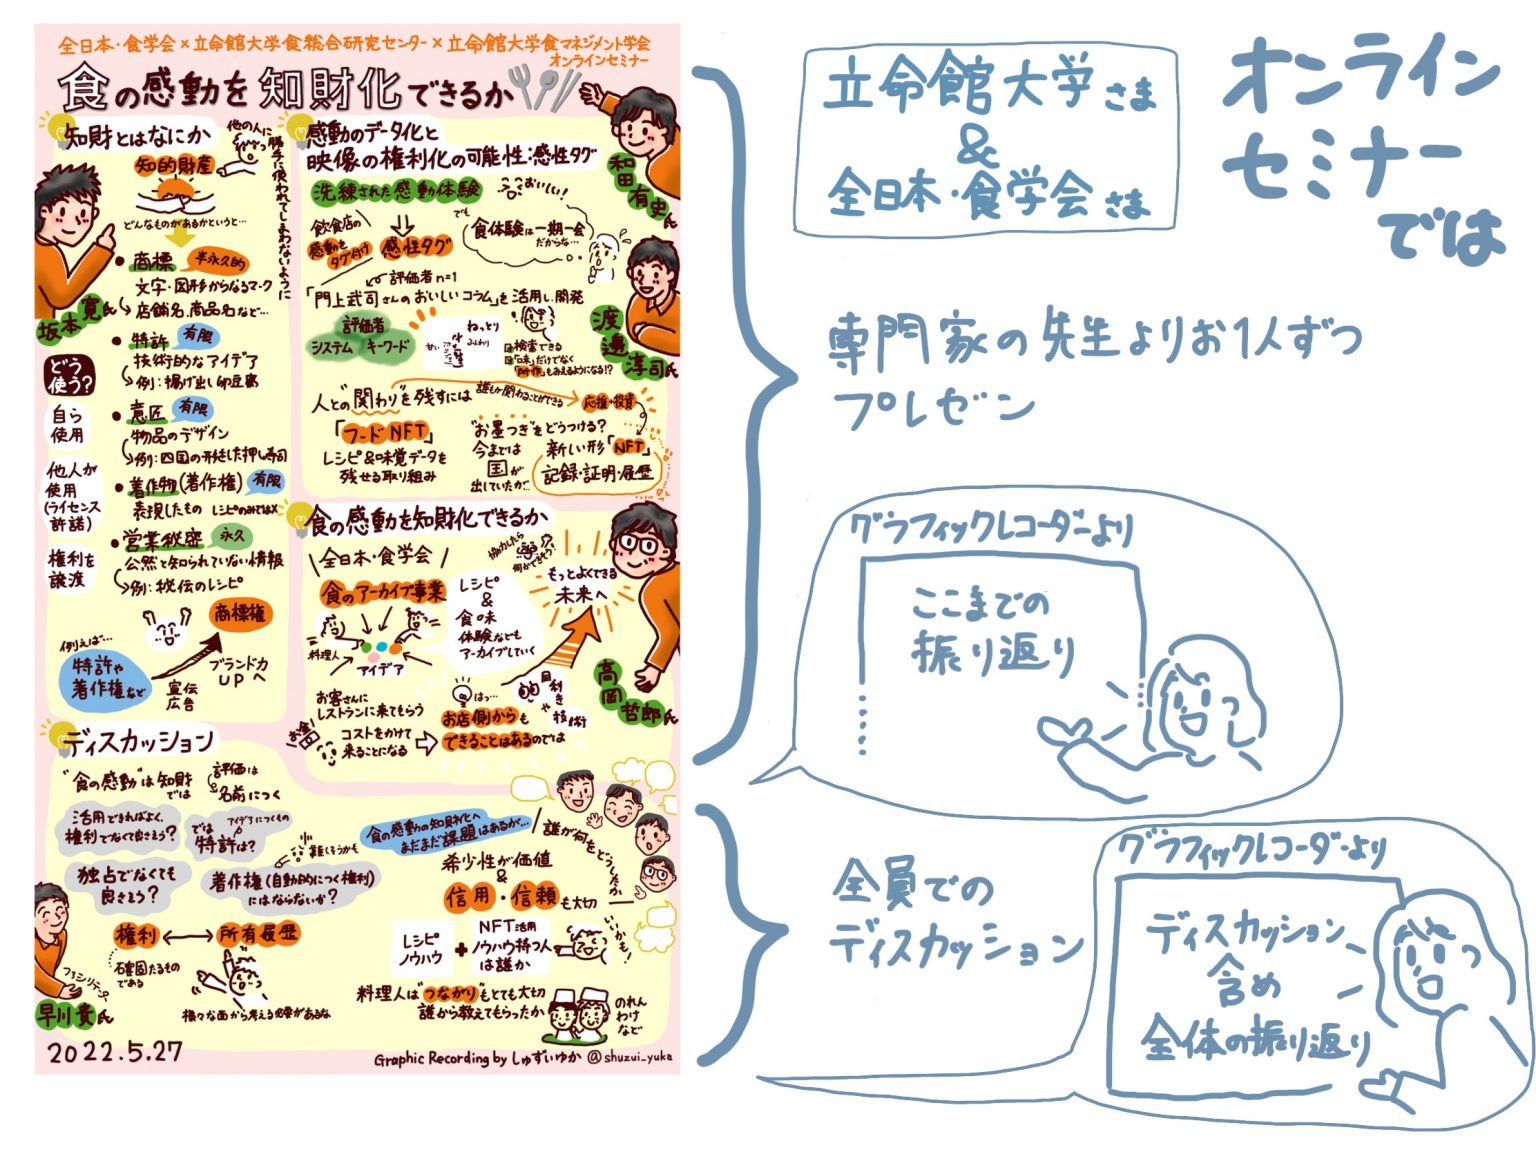 全日本・食学会×立命館大学食総合研究センター×立命館大学食マネジメント学会
オンラインセミナー
食の感動を知財化できるか
知財とはなにか
知的財産
他の人に
勝手に使われてしまわないように
どんなものがあるかというと…
坂本 寛氏
商標
半永久的
文字・図形からなるマーク
店舗名、商品名など…
特許
有限
技術的なアイデア
例:揚げ出し卵豆腐
意匠
有限
物品のデザイン
例:四国の形をした押し寿司
著作物(著作権)
有限
表現したもの レシピのみでは×
営業秘密
永久
公然と知られていない情報
例:秘伝のレシピ
どう
使う?
自ら
使用
他人が
使用
(ライセンス
許諾)
権利を
譲渡
例えば…
特許や
著作権など
宣伝
広告
商標権
ブランド力
UPへ
感動のデータ化と
映像の権利化の可能性:感性タグ
和田 有史氏
洗練された感動体験
おいしい!
飲食店の
感動を
タグ付け
感性タグ
でも
食体験は一期一会
だからな…
評価者n=1
「門上武司さんのおいしいコラム」を活用し開発
渡邊 淳司氏
評価者
システム キーワード
ねっとり
甘い
検索できる
「味」だけでなく
「所作」もみえるようになる!?
人との"関わり"を残すには
誰もが関わることができる
応援+投資
「フードNFT」
レシピ&味覚データを
残せる取り組み
"お墨つき"をどうつける?
今までは
国が
出していたが…
新しい形「NFT」
記録・証明・履歴
食の感動を知財化できるか
全日本・食学会
食のアーカイブ事業
料理人
アイデア
レシピ
&
食味
体験なども
アーカイブしていく
協力したら
何かできそう!
もっとよくできる
未来へ
高岡 哲郎氏
お客さんに
レストランに来てもらう
お金!
コストをかけて
来ることになる
はっ…
お店側からも
できることはあるのでは
目利き
や
技術
ディスカッション
"食の感動"は知財
では
評価は
名前につく
活用できればよく、
権利でなくて良さそう?
アイデアにつくもの
では
特許は?
難しそうかも
独占でなくても
良さそう?
著作権(自動的につく権利)
にはならないか?
食の感動の知財化へ
まだまだ課題はあるが…
誰が何をどうしたか
希少性が価値
&
信用・信頼も大切
権利
所有履歴
確固たるもの
である
ファシリテーター
早川 貴氏
様々な面から考える必要があるな
レシピ
ノウハウ
+
NFT活用
ノウハウ持つ人
は誰か
いいかも!
料理人は"つながり"もとても大切
誰から教えてもらったか
のれん
わけ
など
2022.5.27
Graphic Recording by しゅずいゆか @shuzui_yuka
立命館大学さま
&
全日本・食学会さま
オンライン
セミナー
では
専門家の先生よりお1人ずつ
プレゼン
グラフィックレコーダーより
ここまでの
振り返り
全員での
ディスカッション
グラフィックレコーダーより
ディスカッション
含め
全体の振り返り